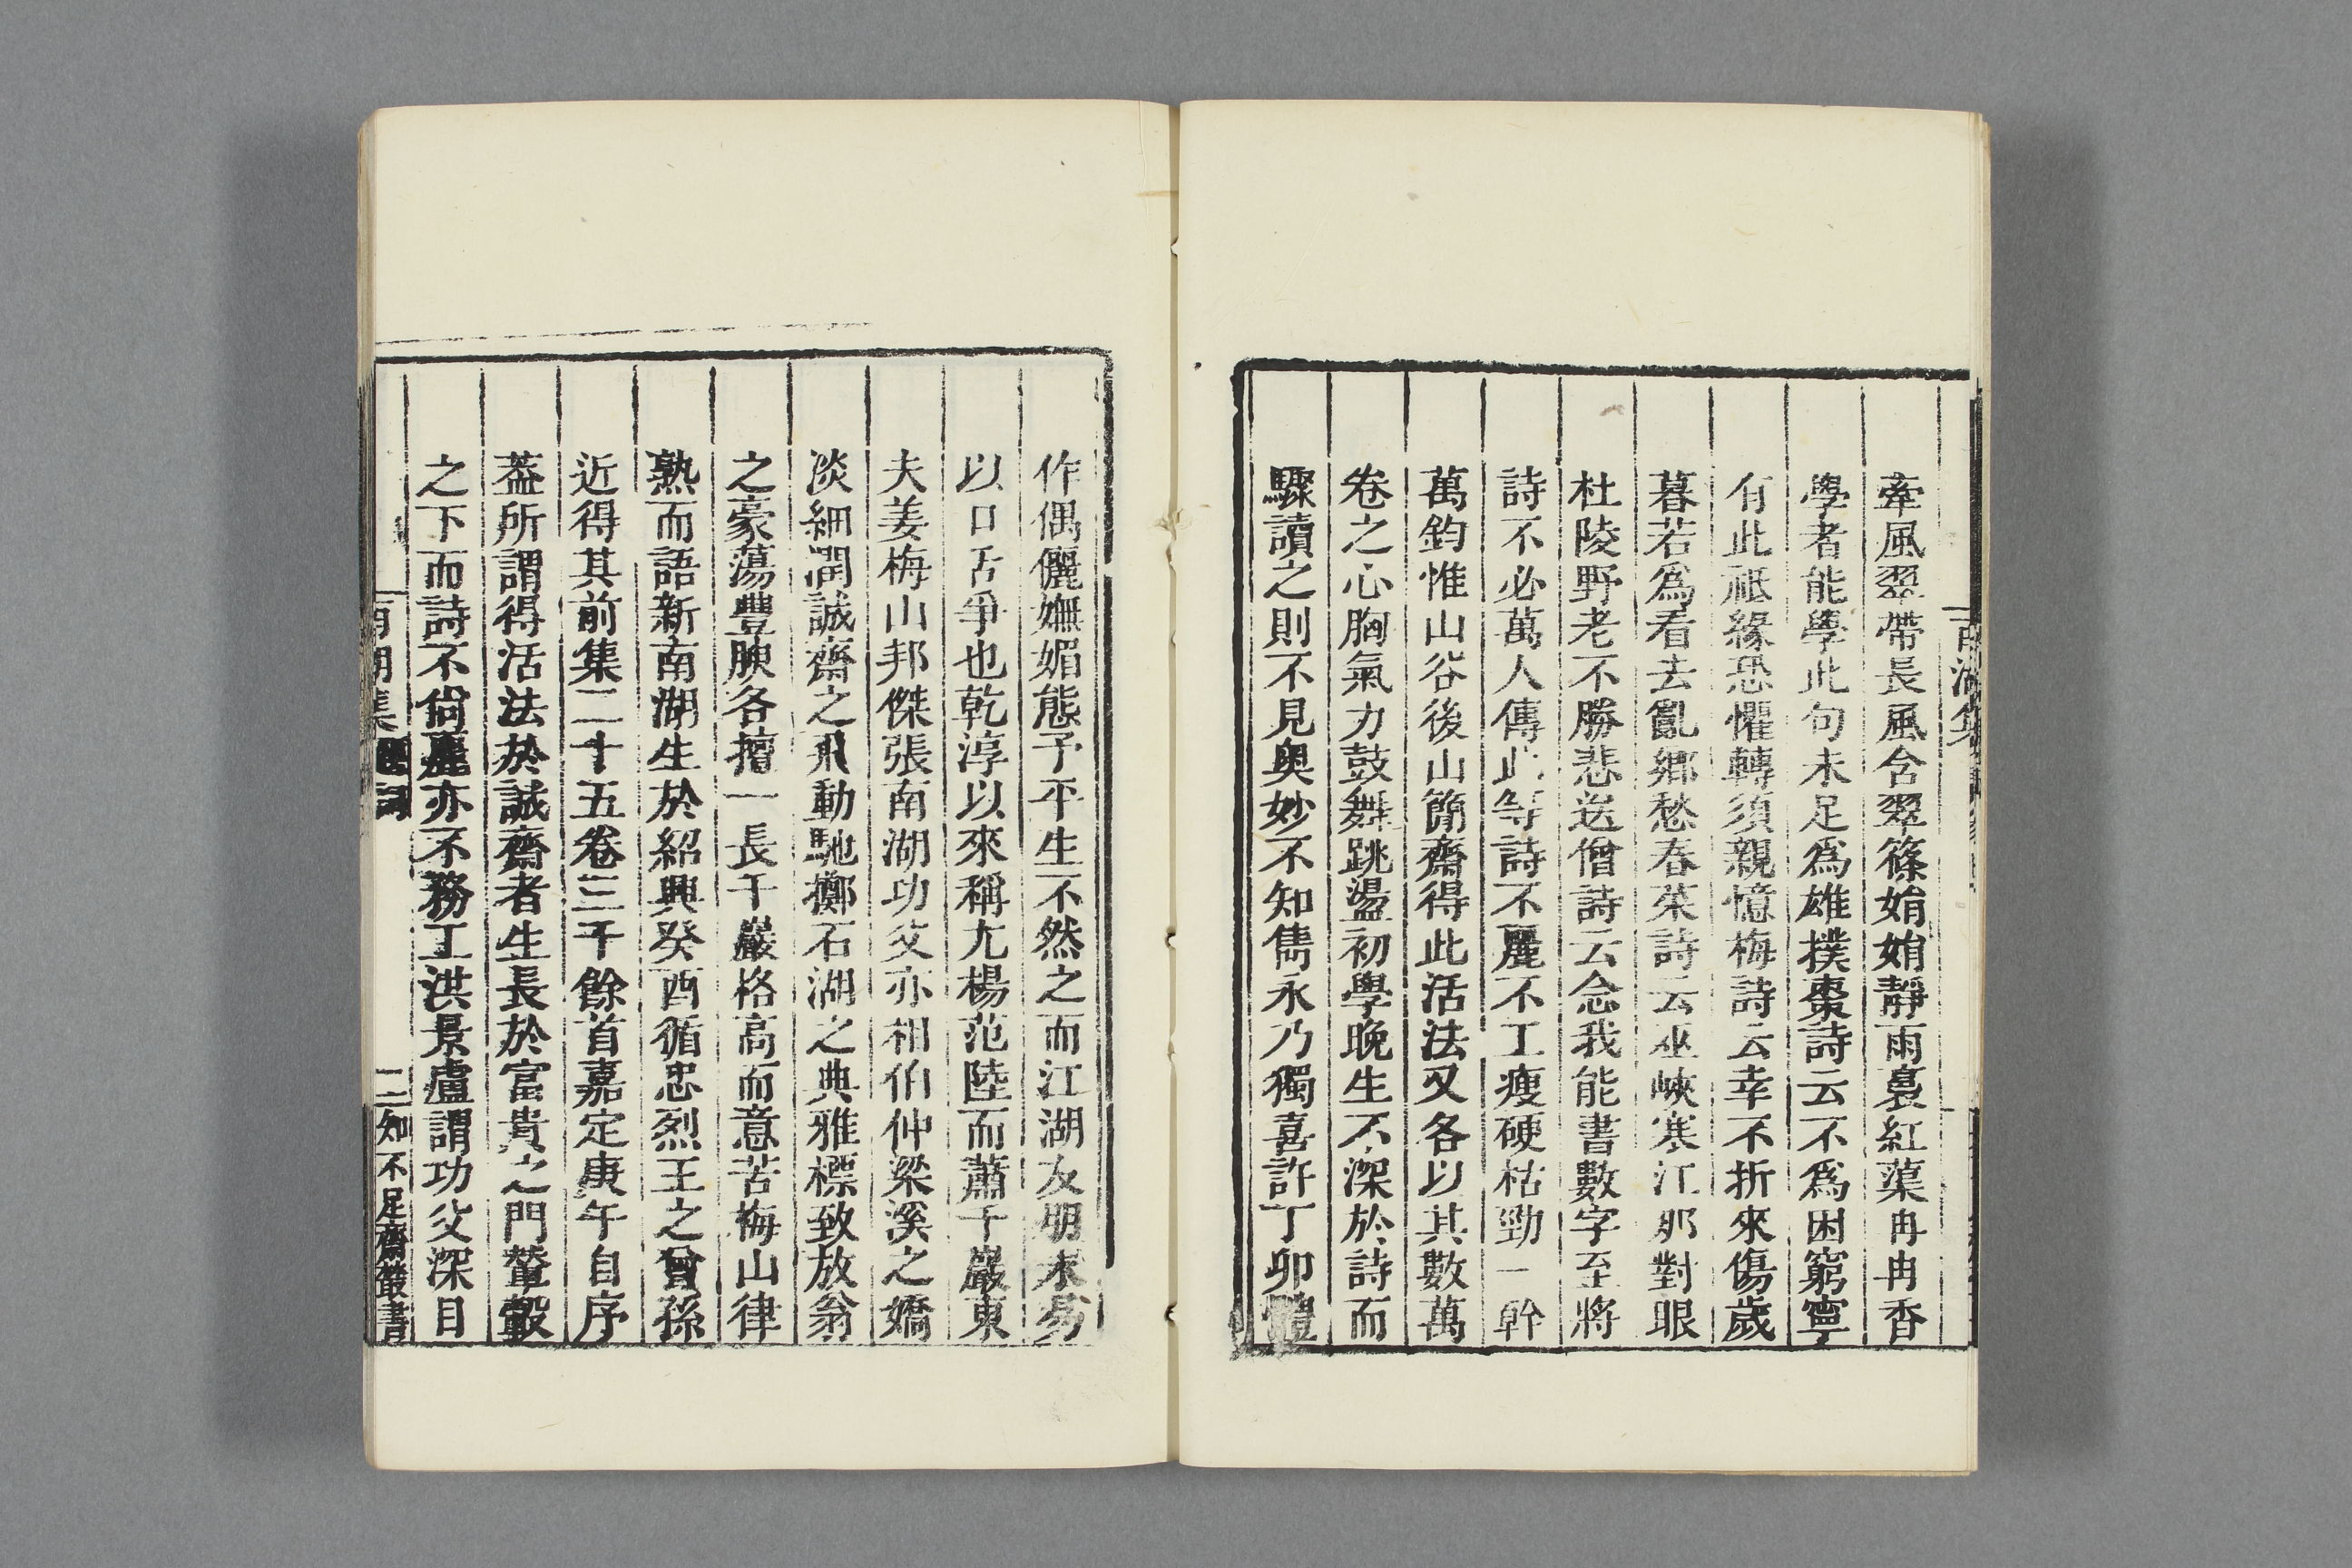 南湖集
牽風翠帶長風含翠篠娟娟靜雨裛紅蕖冉冉香
學者能學此句未足爲雄撲棗詩云不爲困窮寧
有此祗緣恐懼轉須親憶梅詩云幸不折來傷歲
暮若爲看去亂鄉愁春菜詩云巫峽寒江那對眼
杜陵野老不勝悲送僧詩云念我能書數字至將
詩不必萬人傳此等詩不麗不工瘦硬枯勁一斡
萬鈞惟山谷後山簡齋得此活法又各以其數萬
卷之心胸氣力鼓舞跳盪初學晚生不深於詩而
驟讀之則不見奧妙不知雋永乃獨喜許丁卯體
作偶儷嫵媚態予平生不然之而江湖友朋未易
以口舌爭也乾淳以來稱尤楊范陸而蕭千巖東
夫姜梅山邦傑張南湖功父亦相伯仲梁溪之嬌
淡細潤誠齋之飛動馳擲石湖之典雅標致放翁
之豪蕩豐腴各擅一長千巖格高而意苦梅山律
熟而語新南湖生於紹興癸酉循忠烈王之曾孫
近得其前集二十五卷三千餘首嘉定庚午自序
葢所謂得活法於誠齋者生長於富貴之門輦轂
之下而詩不尙麗亦不務工洪景盧謂功父深目
南湖集 詞 二 知不足齋叢書